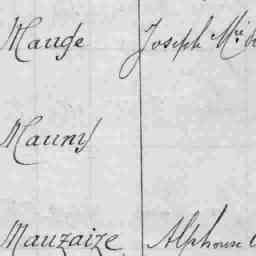 Mauge Joseph Mie
Mauny
Mauzaize Alphonse